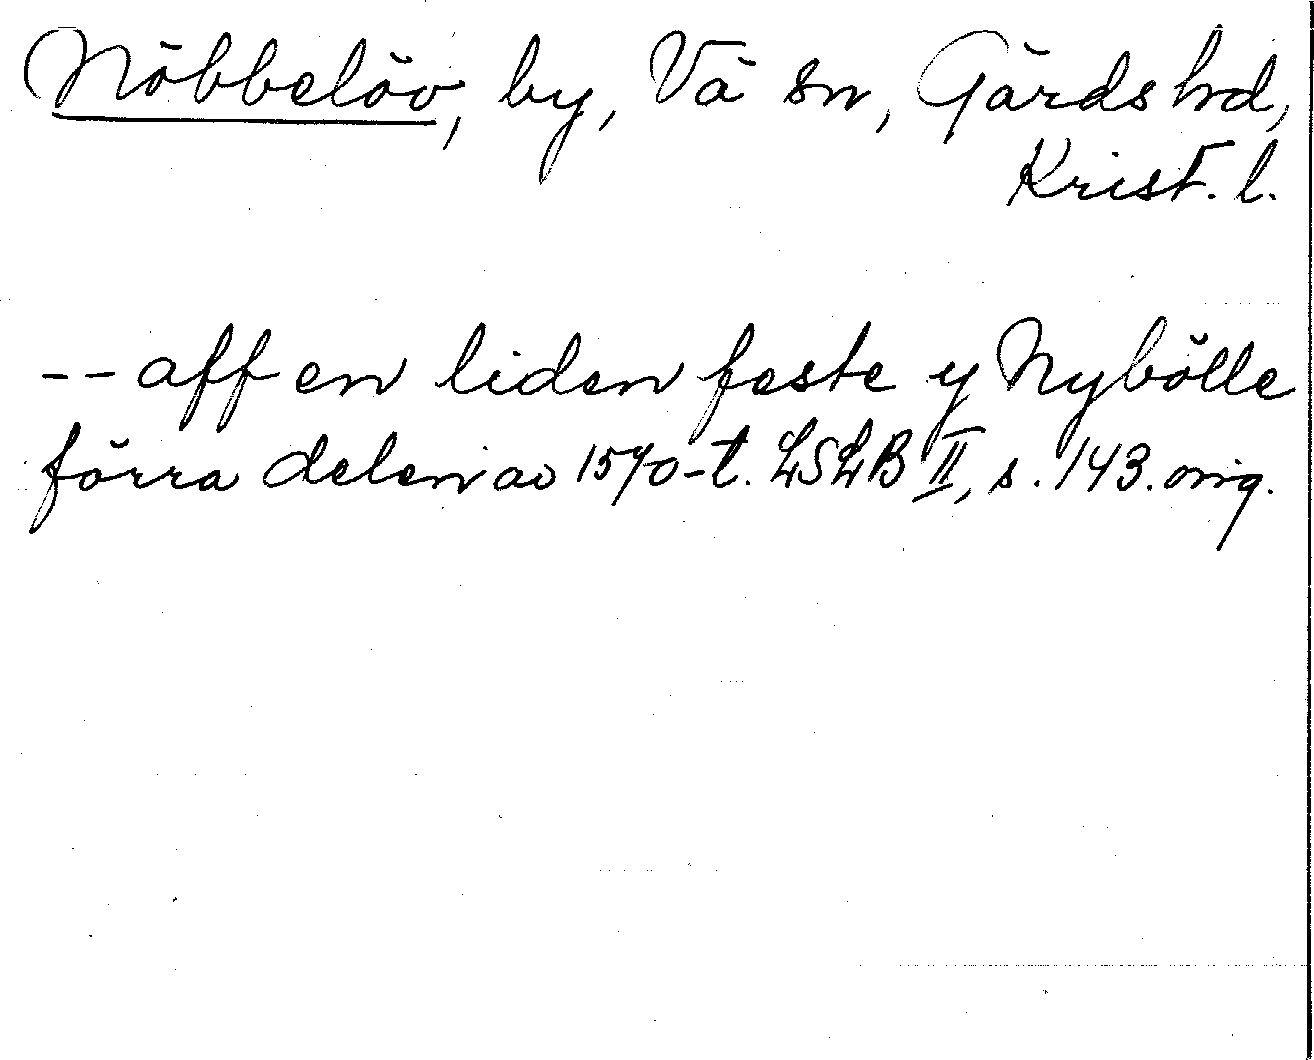 Nöbbelöv, by, Vä sn, Gärds hrd,
Krist. l.
-- aff en liden feste y Nybölle
förra delen av 1570-t. LSLB II, s. 143. orig.